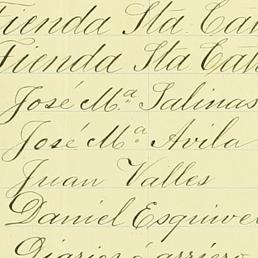 Tienda Sta. Cat
Tienda Sta Cat
José Mª Salinas
José Mª Avila
Juan Valles
Daniel Esquive
Diarios á arriero